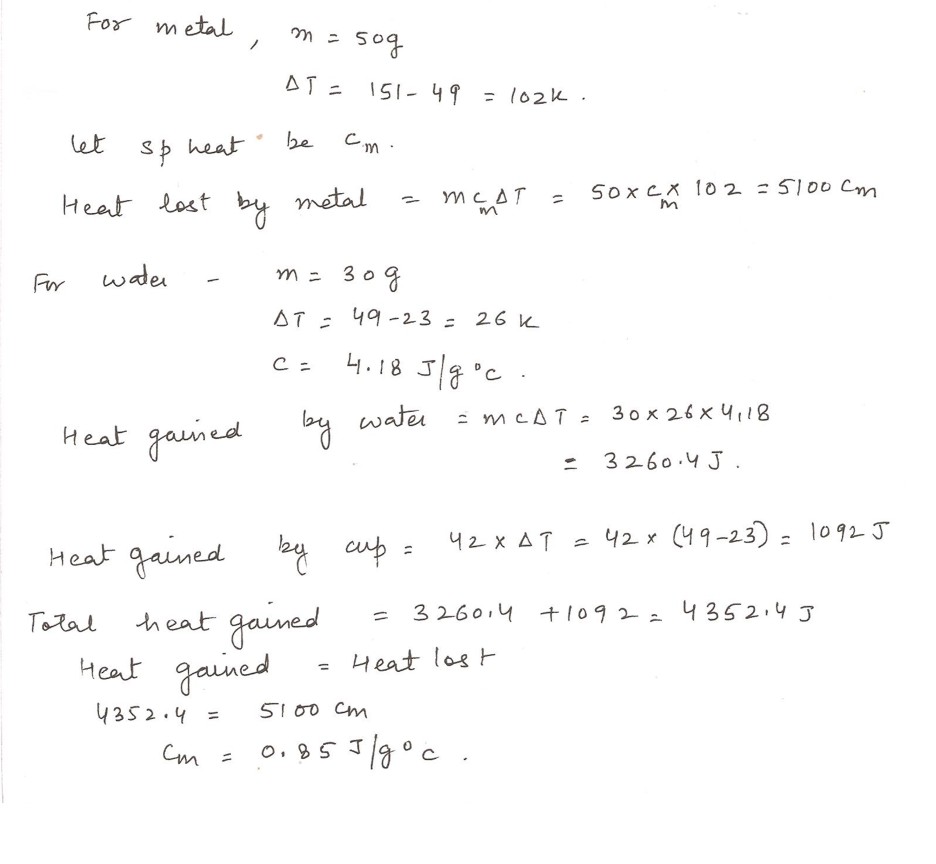 For metal, m = 50g
ΔT = 151 - 49 = 102K.
let sp heat be Cm.
Heat lost by metal = mCmΔT = 50 x Cm x 102 = 5100 Cm
For water - m = 30g
ΔT = 49-23 = 26 K
C = 4.18 J/g °C.
Heat gained by water = mCΔT = 30 x 26 x 4.18
= 3260.4 J.
Heat gained by cup = 42 x ΔT = 42 x (49-23) = 1092 J
Total heat gained = 3260.4 + 1092 = 4352.4 J
Heat gained = Heat lost
4352.4 = 5100 Cm
Cm = 0.85 J/g °C.